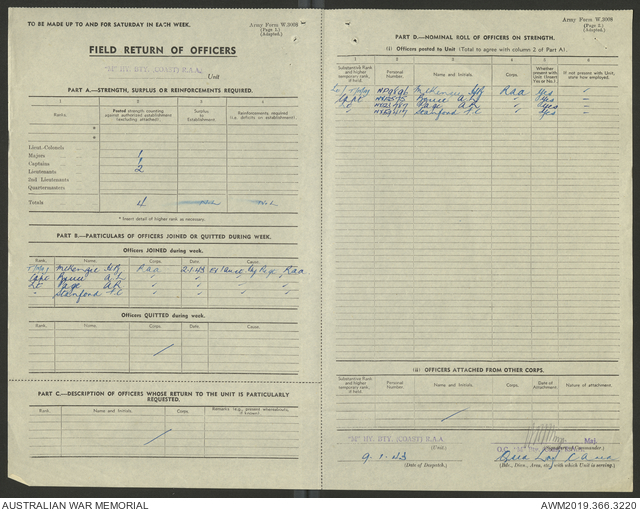 TO BE MADE UP TO AND FOR SATURDAY IN EACH WEEK.
Army Form W.3008
(Page 1.)
(Adapted.)
FIELD RETURN OF OFFICERS
"M" HY. BTY. (COAST) R.A.A.
Unit
PART A.—STRENGTH, SURPLUS OR REINFORCEMENTS REQUIRED.
1 2 3 4
Rank. Posted strength counting against authorized establishment (excluding attached). Surplus to Establishment. Reinforcements required (i.e. deficits on establishment).
*
*
Lieut.-Colonels
Majors 1
Captains 1
Lieutenants 2
2nd Lieutenants
Quartermasters
Totals 4 Nil Nil
* Insert detail of higher rank as necessary.
PART B.—PARTICULARS OF OFFICERS JOINED OR QUITTED DURING WEEK.
Officers JOINED during week.
Rank. Name. Corps. Date. Cause.
T/Maj McKenzie Raa 2.1.43 Raa
Capt A.L. " " "
Lt Page A.R. " " "
" Stanford T.C. " " "
Officers QUITTED during week.
Rank. Name. Corps. Date. Cause.
PART C.—DESCRIPTION OF OFFICERS WHOSE RETURN TO THE UNIT IS PARTICULARLY REQUESTED.
Rank. Name and Initials. Corps. Remarks (e.g., present whereabouts, if known).
Army Form W.3008
(Page 2.)
(Adapted.)
PART D.—NOMINAL ROLL OF OFFICERS ON STRENGTH.
(i) Officers posted to Unit (Total to agree with column 2 of Part A).
1 2 3 4 5 6
Substantive Rank and higher temporary rank, if held. Personal Number. Name, and Initials. Corps. Whether present with Unit (insert Yes or No). If not present with Unit, state how employed.
McKenzie Raa Yes –
Capt A.L. " Yes –
Lt Page A.R. " Yes –
" Stanford T.C. " Yes –
(ii) OFFICERS ATTACHED FROM OTHER CORPS.
Substantive Rank and higher temporary rank, if held. Personal Number. Name and Initials. Corps. Date of Attachment. Nature of attachment.
"M" HY. BTY. (COAST) R.A.A.
(Unit)
Maj.
O.C. "M"
(Signature of Commander)
9.1.43
(Date of Despatch.)
(Bde., Divn., Area, etc., with which Unit is serving.)
AUSTRALIAN WAR MEMORIAL AWM2019.366.3220